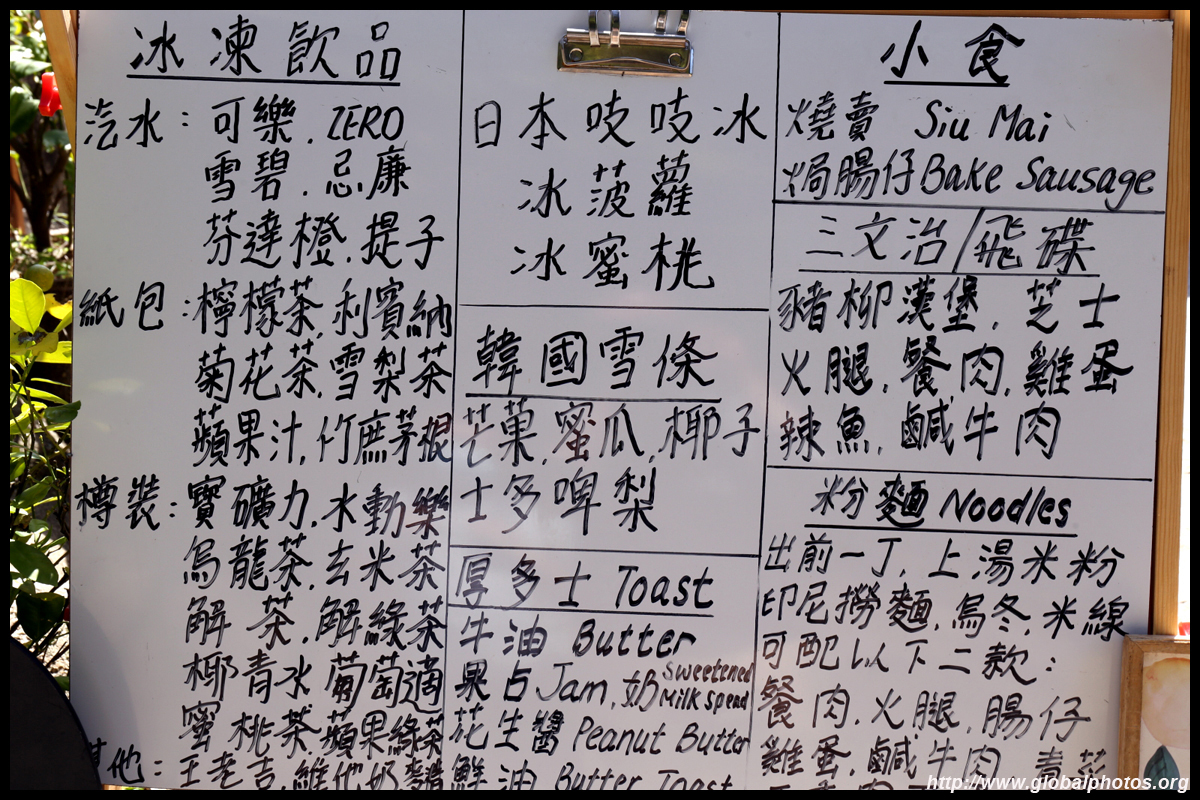 冰凍飲品
汽水：可樂．ZERO
雪碧．忌廉
芬達橙．提子
紙包：檸檬茶．利賓納
菊花茶．雪梨茶
蘋果汁．竹庶茅根
樽裝：寶礦力．水動樂
烏龍茶．玄米茶
解茶．解綠茶
椰青水 葡萄適
蜜桃茶．蘋果綠茶
其他：王老吉．維他奶
日本吱吱冰
冰菠蘿
冰蜜桃
韓國雪條
芒菓．蜜瓜．椰子
士多啤梨
厚多士 Toast
牛油 Butter
果占 Jam．奶 Sweetened
Milk Spead
花生醬 Peanut Butter
鮮油 Butter Toast
小食
燒賣 Siu Mai
焗腸仔 Bake Sausage
三文治/飛碟
豬柳漢堡．芝士
火腿．餐肉．雞蛋
辣魚．鹹牛肉
粉麵 Noodles
出前一丁．上湯米粉
印尼撈麵．烏冬．米線
可配以下二款：
餐肉．火腿．腸仔
雞蛋．鹹牛肉
http://www.globalphotos.org